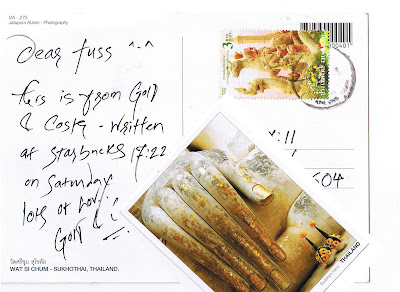 VA - 275
Jatuporn Rutnin - Photography
Dear Fuss ^.^
this is from Gold
& Costa - written
at starbucks 17:22
on Saturday
lots of love
Gold &
วัดศรีชุม สุโขทัย
WAT SI CHUM - SUKHOTHAI, THAILAND.
3
00401
THAILAND